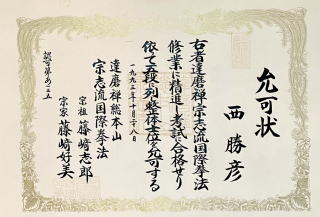 允可状
西勝彦
右者達磨禅宗志流国際拳法
修業に精進し考試に合格せり
依て五段の列整体士位を允可する
一九九三年十月二十八日
達磨禅総本山
宗志流国際拳法
宗祖 藤﨑志郎
宗家 藤﨑好美
認可第